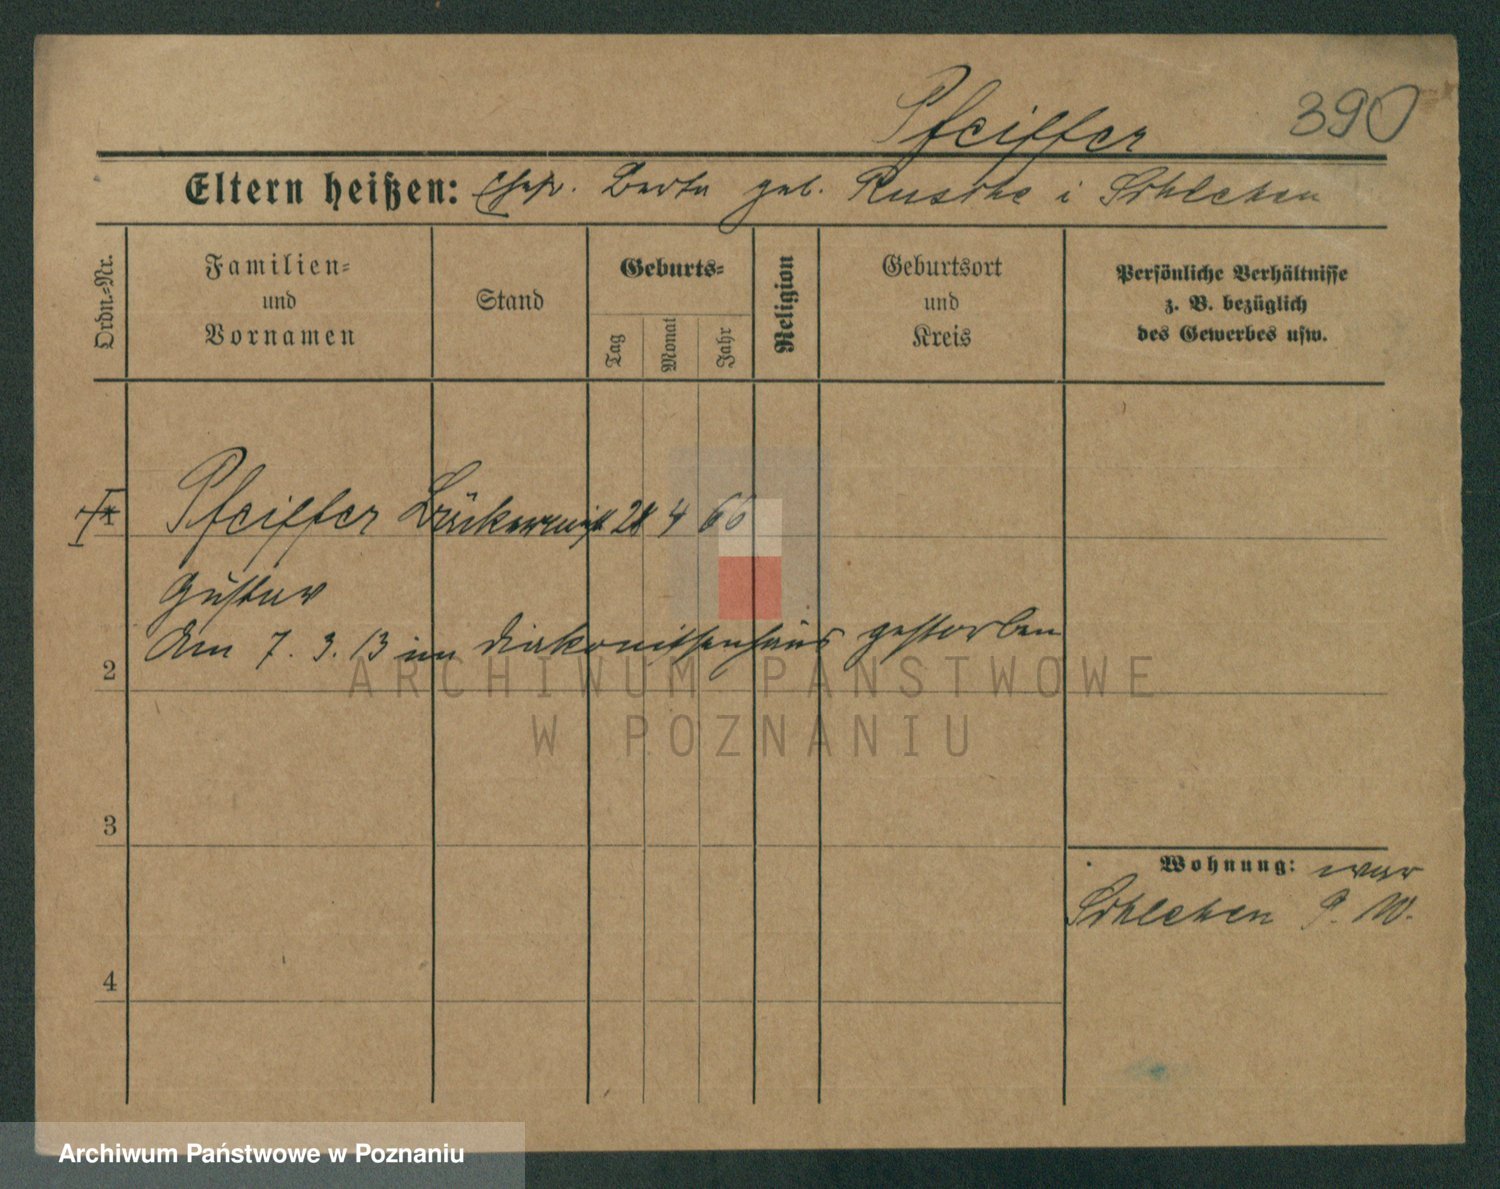 Pfeiffer 390
Eltern heißen: Ehefr. Berta geb. i Schlehen
Ordn.-Nr.
Familien-
und
Vornamen
Stand
Geburts-
Tag
Monat
Jahr
Religion
Geburtsort
und
Kreis
Persönliche Verhältnisse
z. B. bezüglich
des Gewerbes usw.
Pfeiffer Bäckermstr 28 4 66
Gustav
Am 7. 3. 13 im Diakonissenhaus gestorben
2
ARCHIWUM PAŃSTWOWE
W POZNANIU
3
Wohnung: war
Schlehen P. W.
4
Archiwum Państwowe w Poznaniu